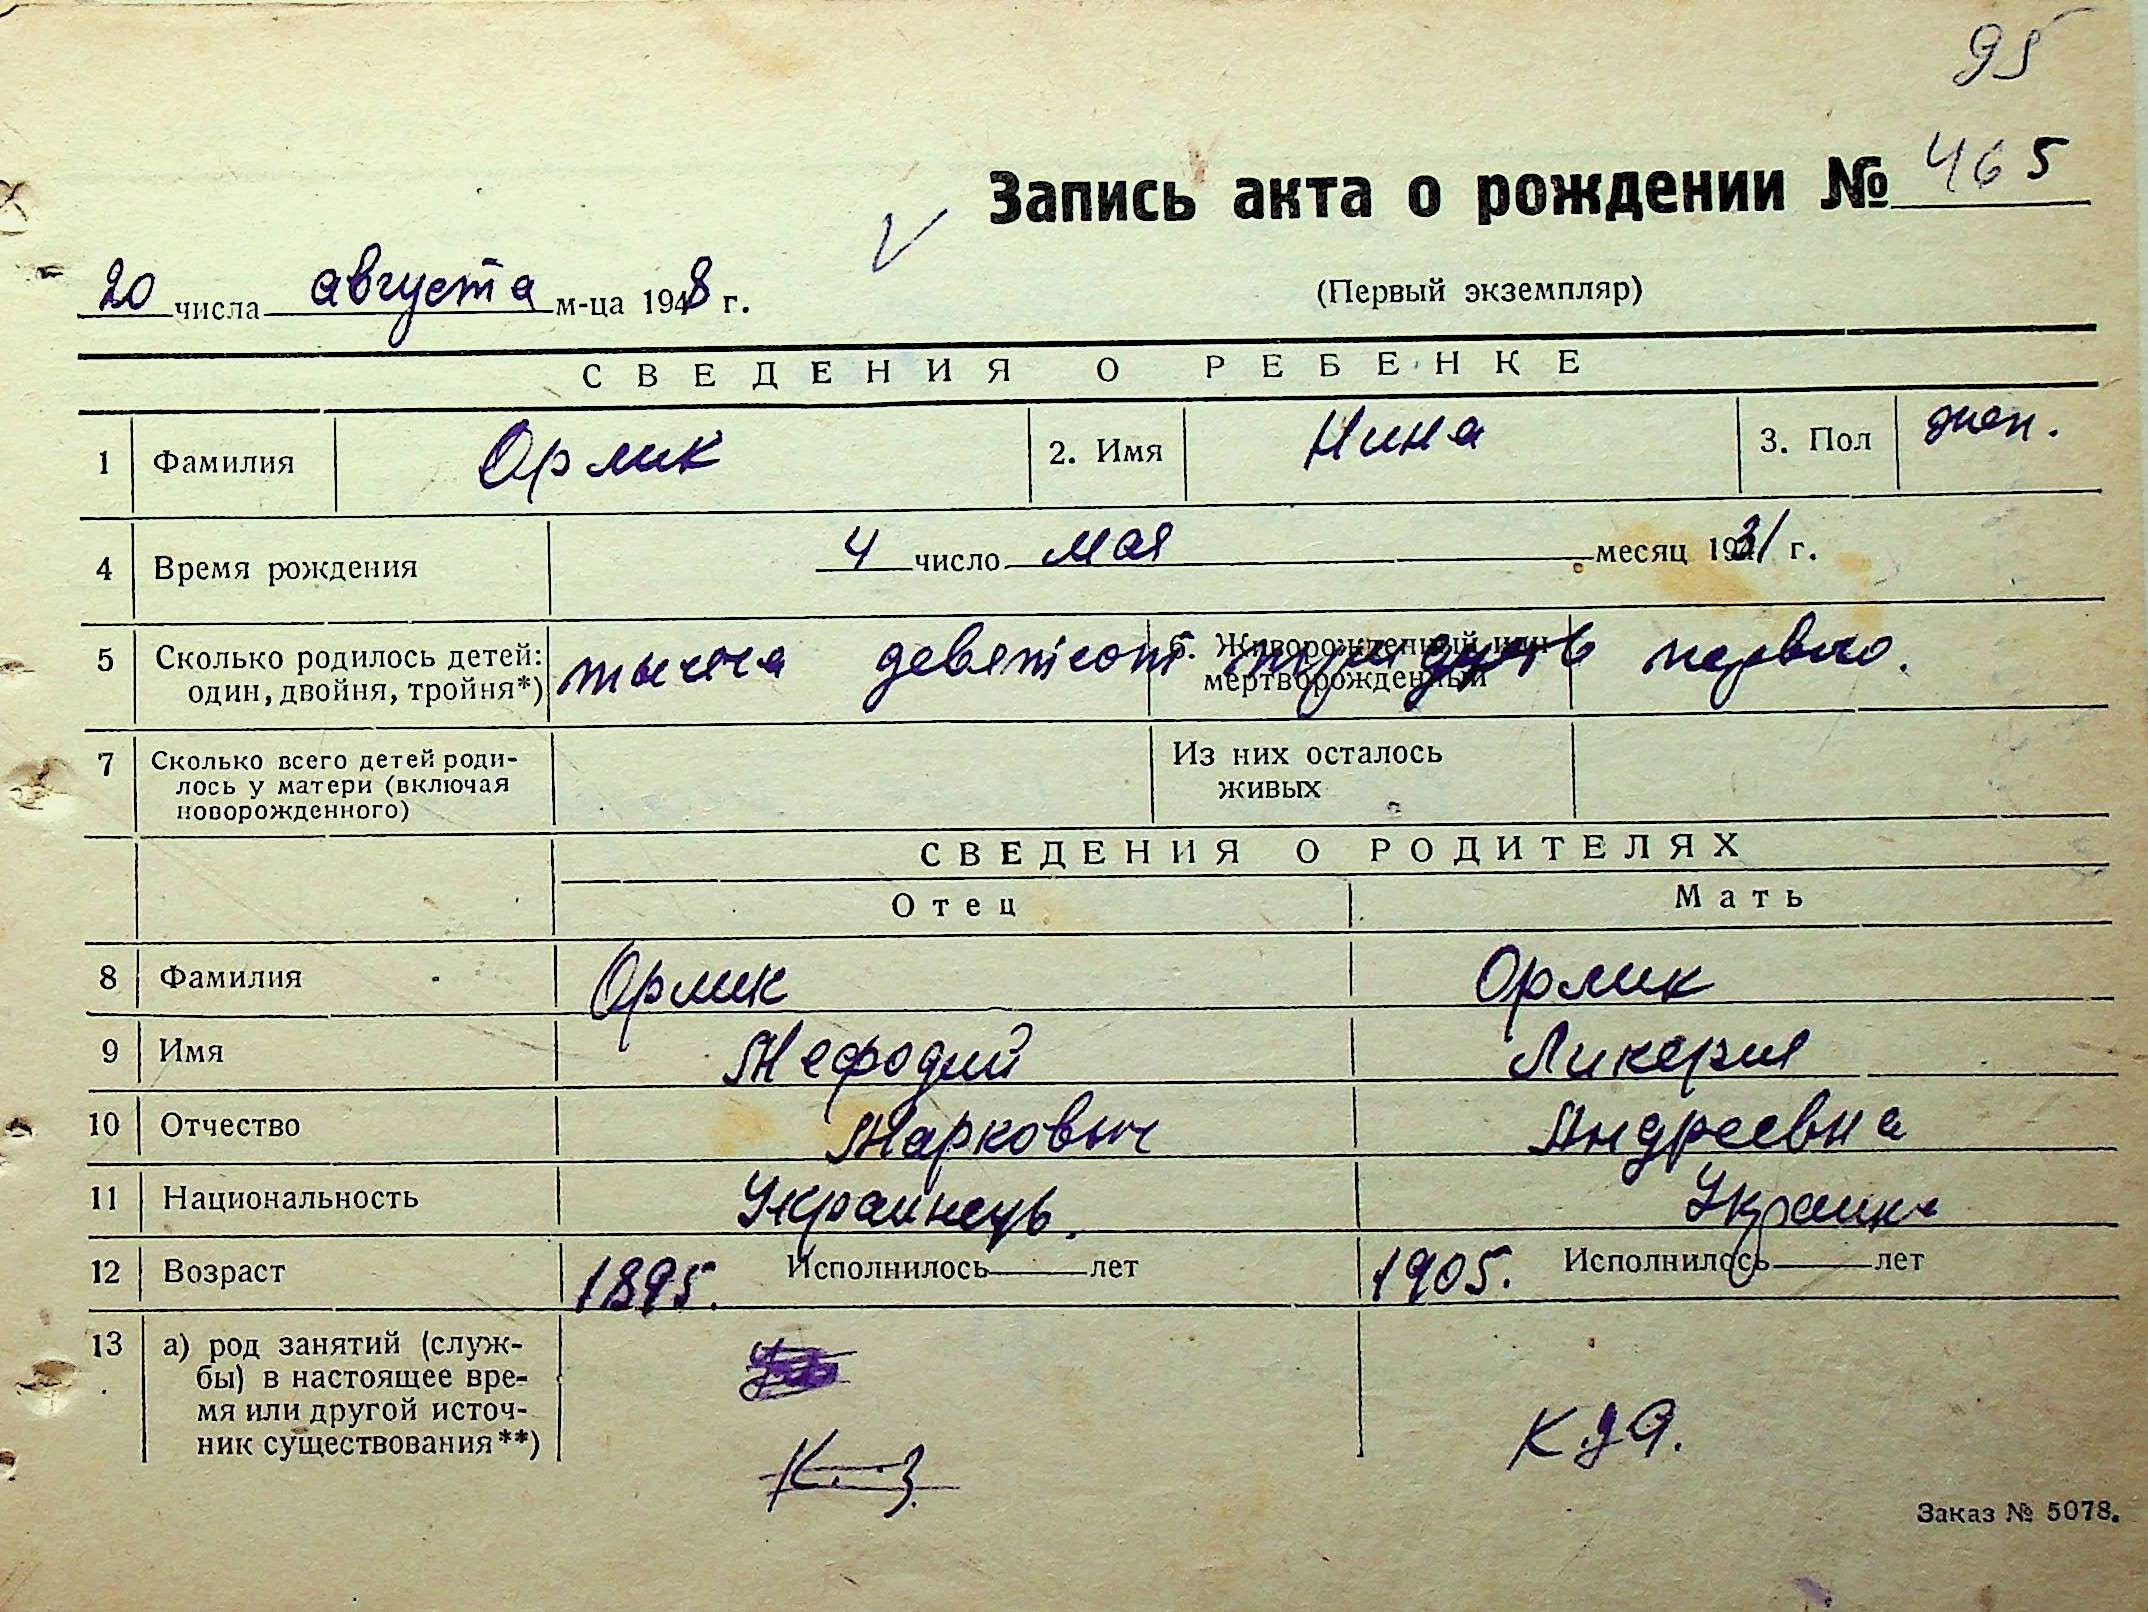 95
Запись акта о рождении № 465
20 числа августа м-ца 1948 г.
(Первый экземпляр)
СВЕДЕНИЯ О РЕБЕНКЕ
1 Фамилия Орлик 2. Имя Нина 3. Пол жен.
4 Время рождения 4 число мая месяц 1931 г.
5 Сколько родилось детей: один, двойня, тройня*) 6. Живорожденный или мертворожденный
тысяча девятсот тридцать первого.
7 Сколько всего детей роди-
лось у матери (включая
новорожденного)
Из них осталось
живых
СВЕДЕНИЯ О РОДИТЕЛЯХ
Отец Мать
8 Фамилия Орлик Орлик
9 Имя Мефодий Ликерия
10 Отчество Маркович Андреевна
11 Национальность Украинець. Украинка
12 Возраст 1895. Исполнилось лет 1905. Исполнилось лет
13 а) род занятий (служ-
бы) в настоящее вре-
мя или другой источ-
ник существования**)
К. З.
Заказ № 5078.